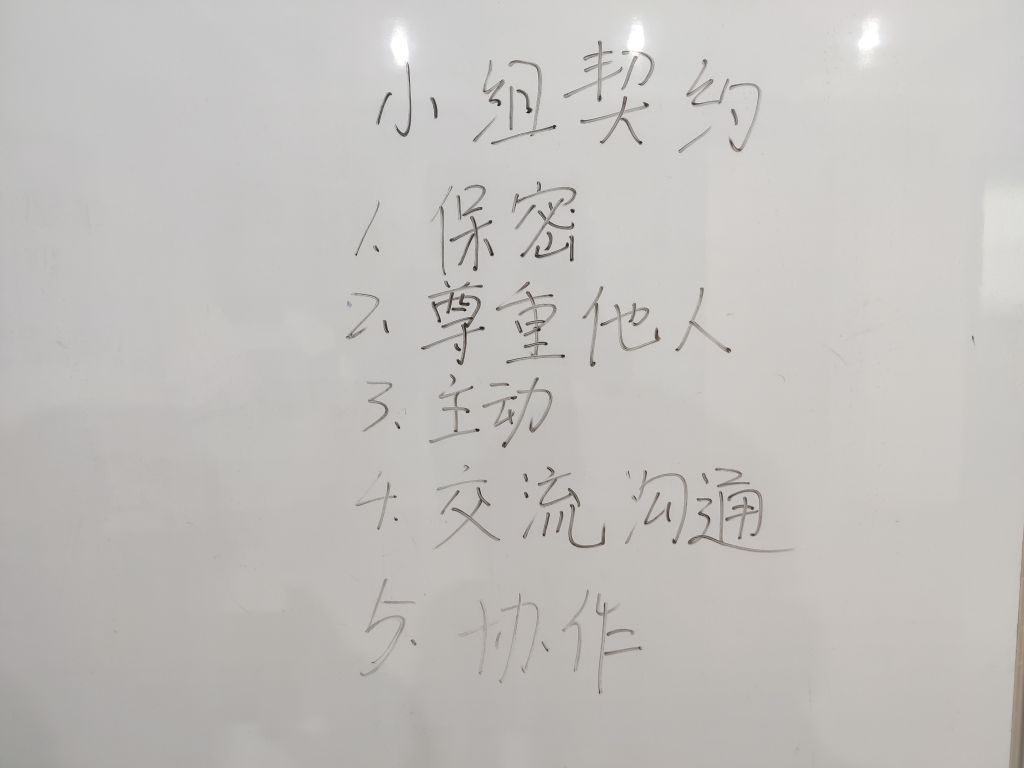 小组契约
1. 保密
2. 尊重他人
3. 主动
4. 交流沟通
5. 协作